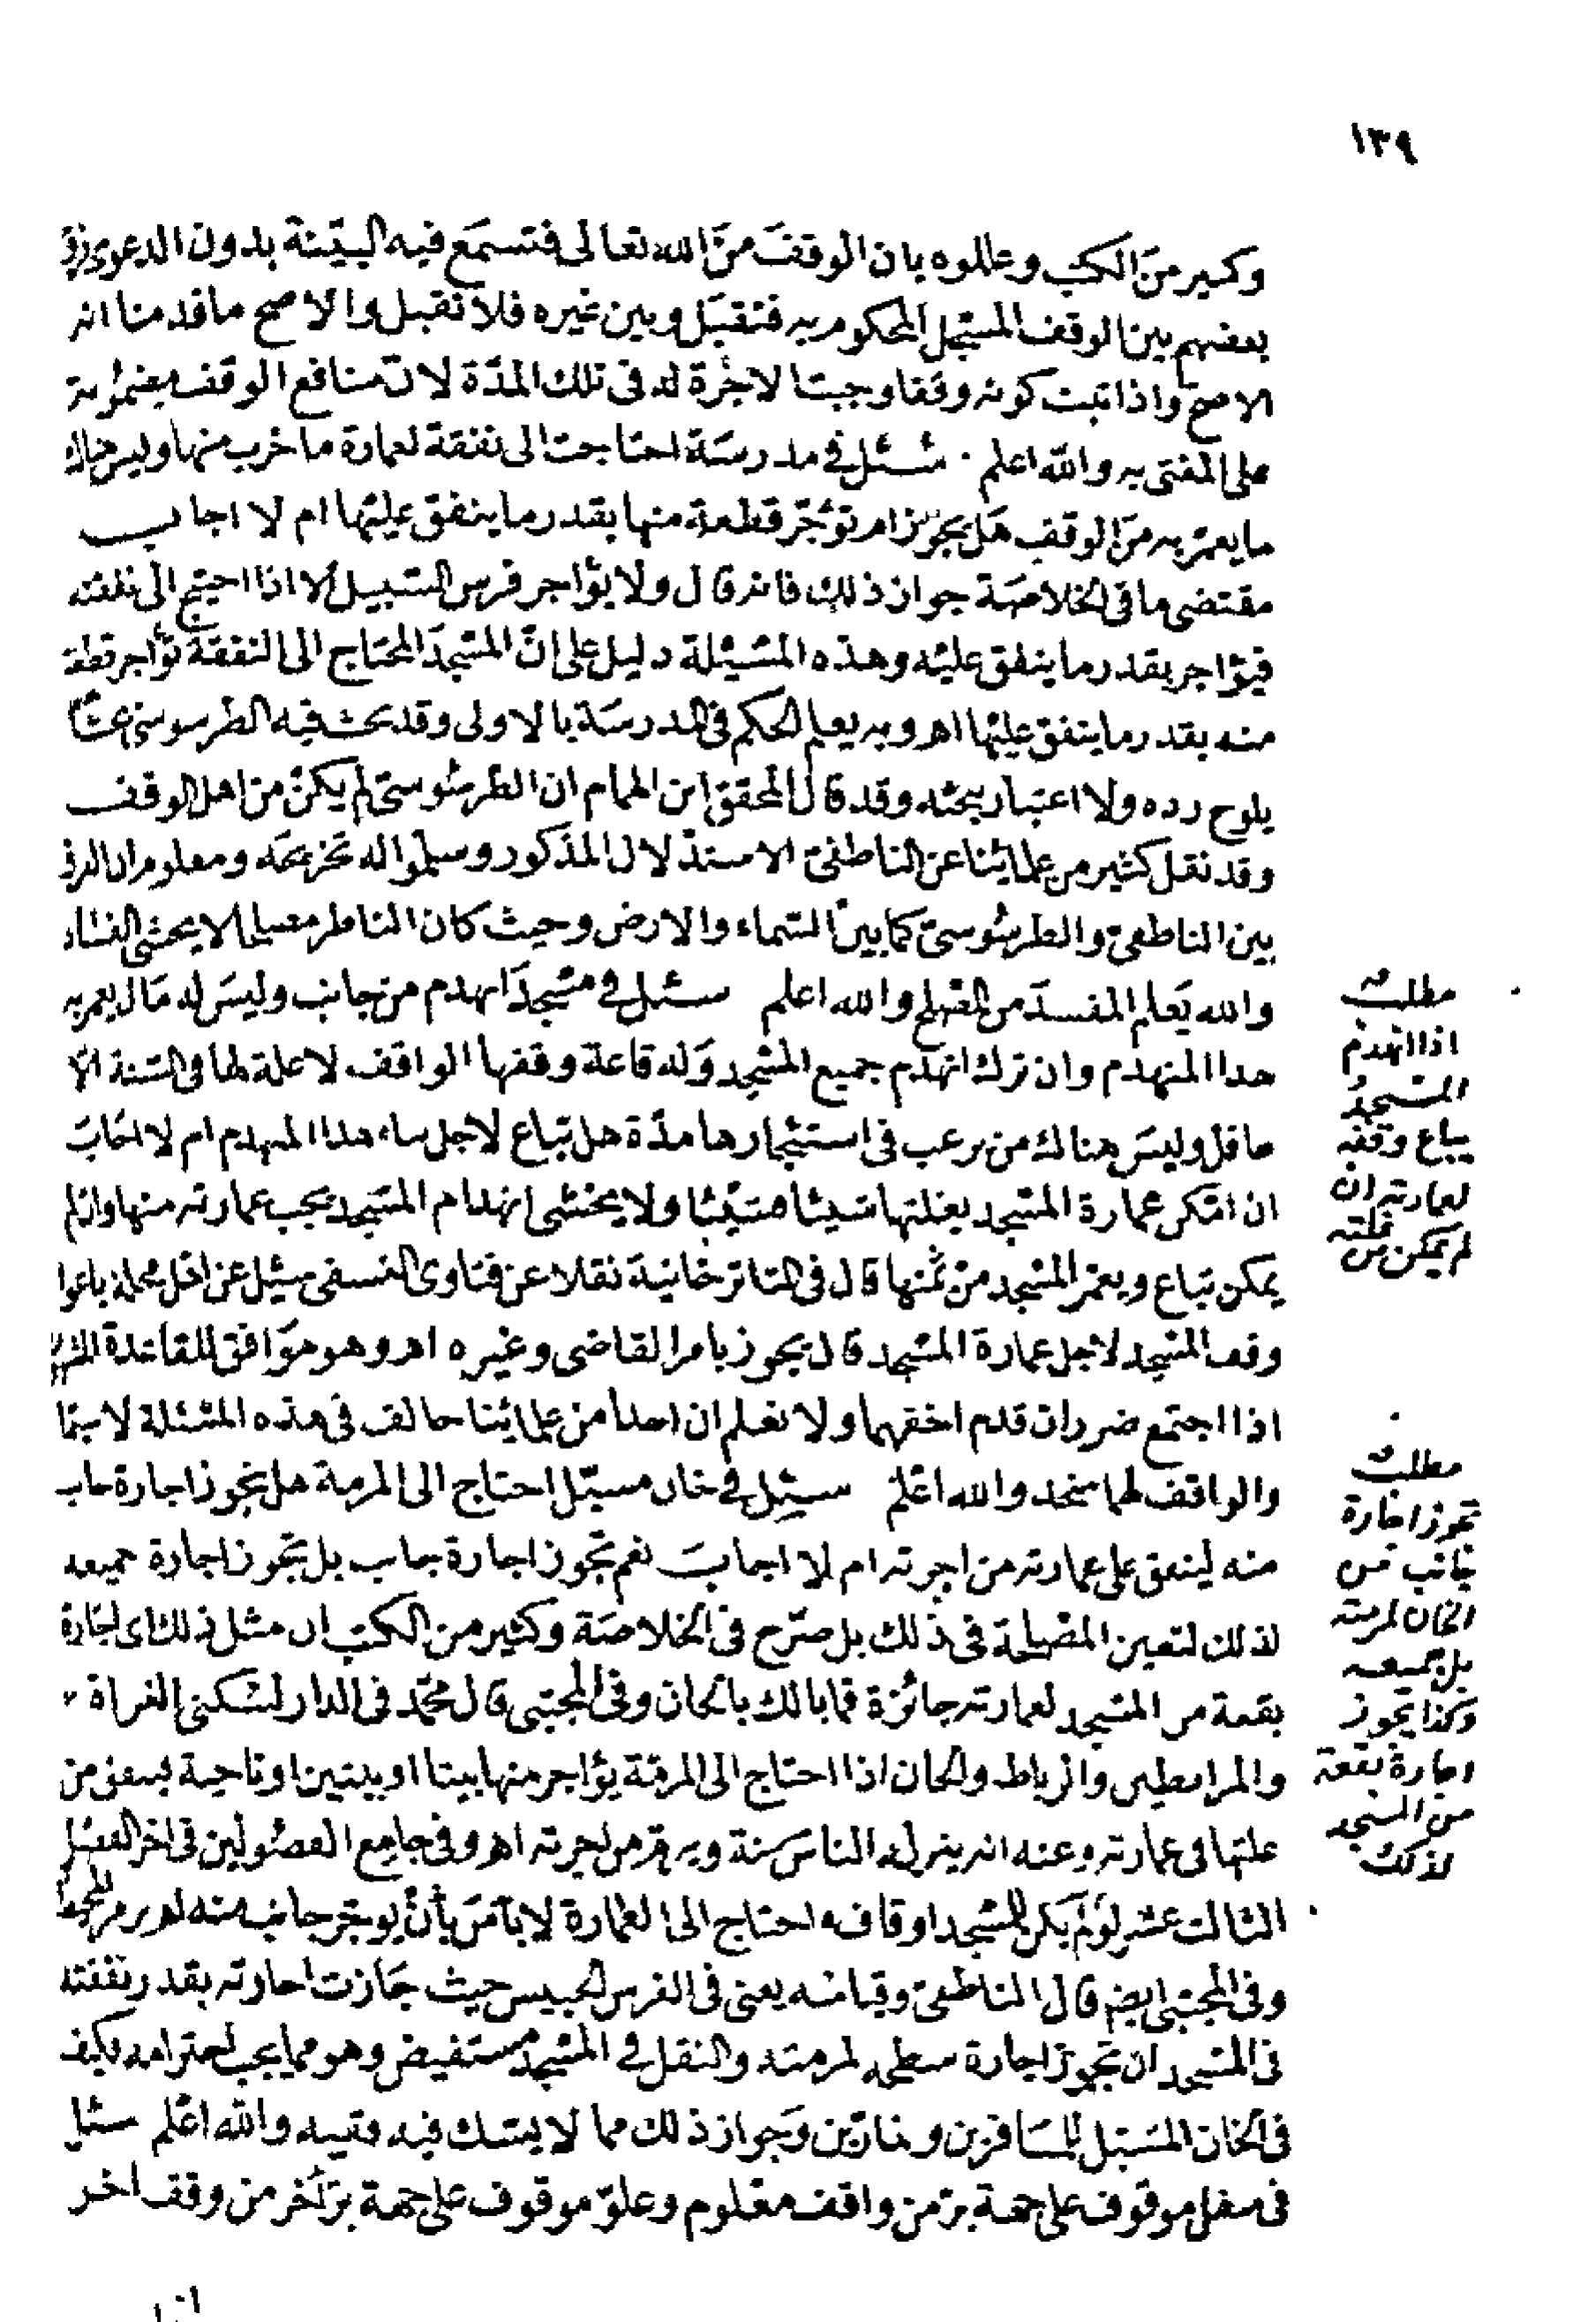 ١٣٩
وكثير من الكتب وعللوه بان الوقف من الله تعالى فتسمع فيه البينة بدون الدعوى وفرق
بعضهم بين الوقف المسجل المحكوم به فتقبل وبين غيره فلا تقبل والاصح ما قدمنا انه
الاصح واذا ثبت كونه وقفا وجبت الاجرة له في تلك المدة لان منافع الوقف مضمونة
على المفتى به والله اعلم سئل في مدرسة احتاجت الى نفقة لعمارة ما خرب منها وليس هناك
ما يعمر به من الوقف هل يجوز ان تؤجر قطعة منها بقدر ما ينفق عليها ام لا اجاب
مقتضى ما في الخلاصة جواز ذلك فانه قال ولا يؤاجر فرس السبيل الا اذا احتيج الى نفقته
فيؤاجر بقدر ما ينفق عليه وهذه المسئلة دليل على ان المسجد المحتاج الى النفقة تؤاجر قطعة
منه بقدر ما ينفق عليها اهـ وبه يعلم الحكم في المدرسة بالاولى وقد بحث فيه الطرسوسي بحثا
يلوح رده ولا اعتبار ببحثه وقد قال المحقق ابن الهمام ان الطرسوسي لم يكن من اهل الوقف
وقد نقل كثير من علمائنا عن الناطفي الاستدلال المذكور وسلموا له تخريجه ومعلوم ان الفرق
بين الناطفي والطرسوسي كما بين السماء والارض وحيث كان الناظر مصلحا لا يخشى الفساد
والله يعلم المفسد من المصلح والله اعلم سئل في مسجد انهدم من جانب وليس له مال يعمر به
هذا المنهدم وان ترك انهدم جميع المسجد وله قاعة وقفها الواقف لا غلة لها في السنة الا
ما قل وليس هناك من يرغب في استئجارها مدة هل تباع لاجل بناء هذا المنهدم ام لا اجاب
ان امكن عمارة المسجد بغلتها شيئا فشيئا ولا يخشى انهدام المسجد يجب عمارته منها وان لم
يمكن تباع ويعمر المسجد من ثمنها قال في التاترخانية نقلا عن فتاوى النسفي سئل عن اهل محلة باعوا
وقف المسجد لاجل عمارة المسجد قال يجوز بامر القاضي وغيره اهـ وهو موافق للقاعدة المشهورة
اذا اجتمع ضرران قدم اخفهما ولا نعلم ان احدا من علمائنا خالف في هذه المسئلة لا سيما
والواقف لهما متحد والله اعلم سئل في خان مسبل احتاج الى المرمة هل تجوز اجارة جانب
منه لينفق على عمارته من اجرته ام لا اجاب نعم تجوز اجارة جانب بل تجوز اجارة جميعه
لذلك لتعين المصلحة في ذلك بل صرح في الخلاصة وكثير من الكتب ان مثل ذلك اي اجارة
بقعة من المسجد لعمارته جائزة فما بالك بالخان وفي المجتبى قال محمد في الدار لسكنى الغزاة
والمرابطين والرباط والخان اذا احتاج الى المرمة يؤاجر منها بيتا او بيتين او ناحية فينفق من
غلتها في عمارته وعنه انه ينزله الناس سنة ويرمه من اجرته اهـ وفي جامع الفصولين في اخر الفصل
الثالث عشر لو لم يكن للمسجد اوقاف واحتاج الى العمارة لا بأس بأن يوجر جانب منه
وفي المجتبى ايضا قال الناطفي وقياسه يعني في الفرس الحبيس حيث جازت اجارته بقدر نفقته
في المسجد ان تجوز اجارة سطحه لمرمته والنقل في المسجد مستفيض وهو مما يجب احترامه فكيف
في الخان المسبل للمسافرين والمارين وجواز ذلك مما لا يشك فيه فقيه والله اعلم سئل
في سفل موقوف على جهة بر من واقف معلوم وعلو موقوف على جهة بر آخر من وقف اخر
مطلب
اذا انهدم
المسجد
يباع وقفه
لعمارته ان
لم يمكن من غلته
مطلب
تجوز اجارة
جانب من
الخان لمرمته
بل جميعه
وكذا يجوز
اجارة بقعة
من المسجد
لذلك